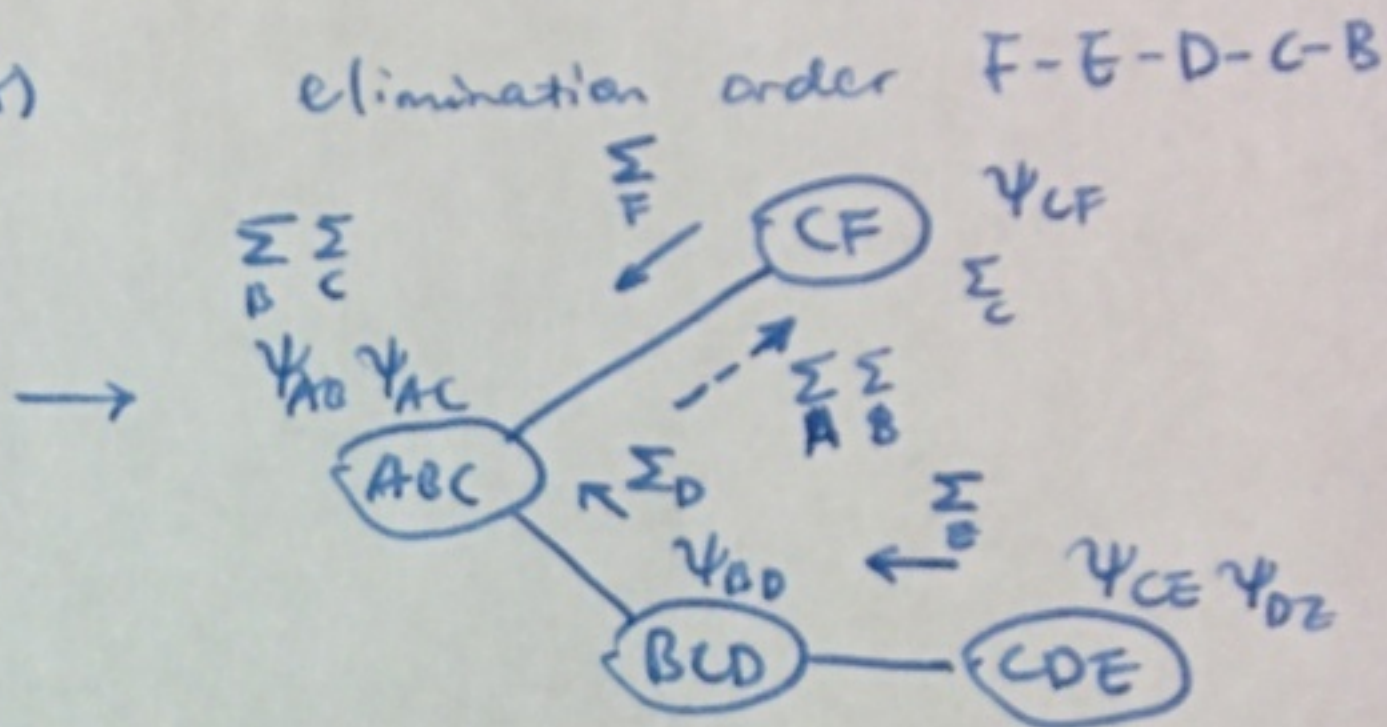 ) elimination order F-E-D-C-B
Σ
F
CF ψ_CF
Σ Σ
B C
Σ_C
ψ_AB ψ_AC
Σ Σ
A B
ABC
Σ_D
Σ
ψ_BD
ψ_CE ψ_DE
BCD CDE